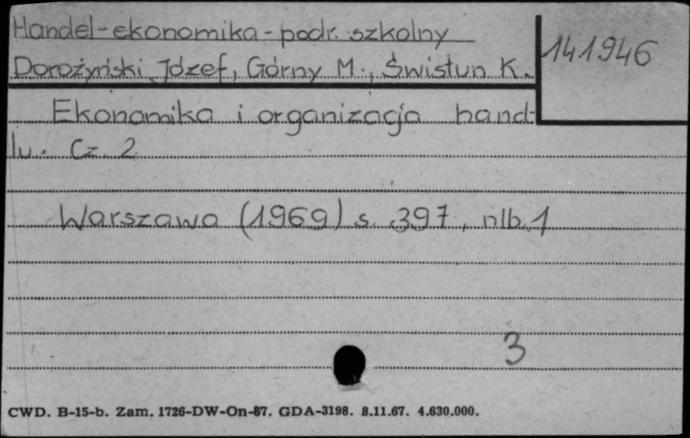 Handel-ekonomika-podr. szkolny
141946
Dorożyński Józef, Górny M., Świstun K.
Ekonomika i organizacja hand-
lu. Cz. 2
Warszawa (1969) s. 397, nlb. 1
3
CWD. B-15-b. Zam. 1726-DW-On-67. GDA-3198. 8.11.67. 4.630.000.